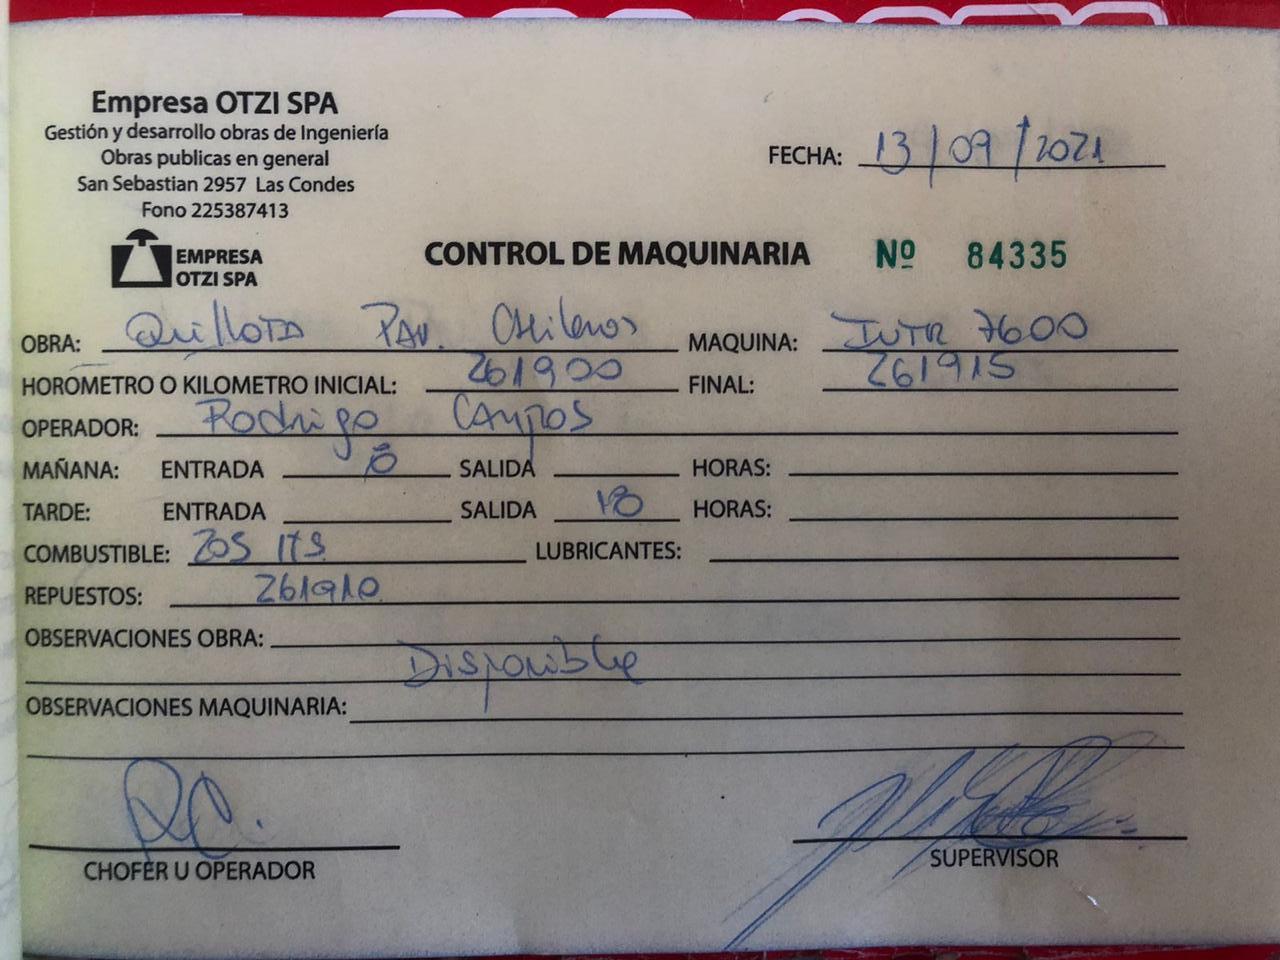 Empresa OTZI SPA
Gestión y desarrollo obras de Ingeniería
Obras publicas en general
San Sebastian 2957 Las Condes
Fono 225387413
FECHA: 13/09/2021
EMPRESA
OTZI SPA
CONTROL DE MAQUINARIA Nº 84335
OBRA: Quillota Pav. Chilenos MAQUINA: INTR 7600
HOROMETRO O KILOMETRO INICIAL: 261900 FINAL: 261915
OPERADOR: Rodrigo Campos
MAÑANA: ENTRADA 8 SALIDA HORAS:
TARDE: ENTRADA SALIDA 18 HORAS:
COMBUSTIBLE: 205 lts LUBRICANTES:
REPUESTOS: 261910
OBSERVACIONES OBRA:
Disponible
OBSERVACIONES MAQUINARIA:
R C.
CHOFER U OPERADOR
SUPERVISOR